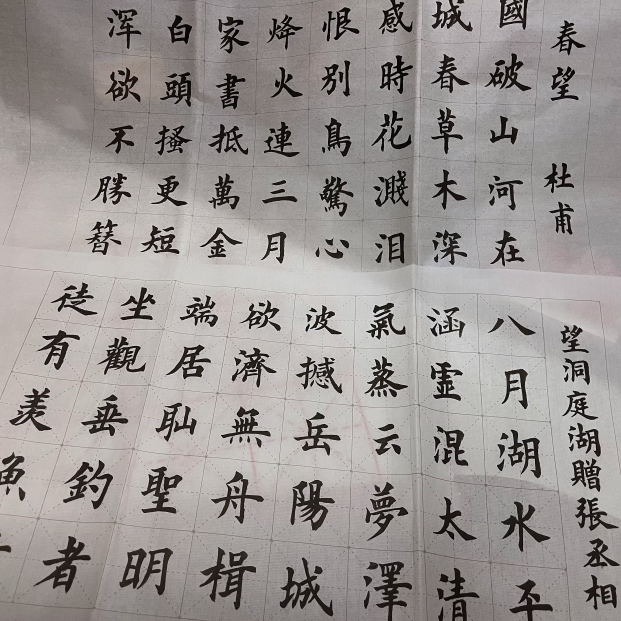 春望 杜甫
國破山河在
城春草木深
感時花濺泪
恨別鳥驚心
烽火連三月
家書抵萬金
白頭搔更短
浑欲不勝簪
望洞庭湖贈張丞相
八月湖水平
涵霊混太清
氣蒸云夢澤
波撼岳陽城
欲濟無舟楫
端居耻聖明
坐觀垂釣者
徒有羡魚